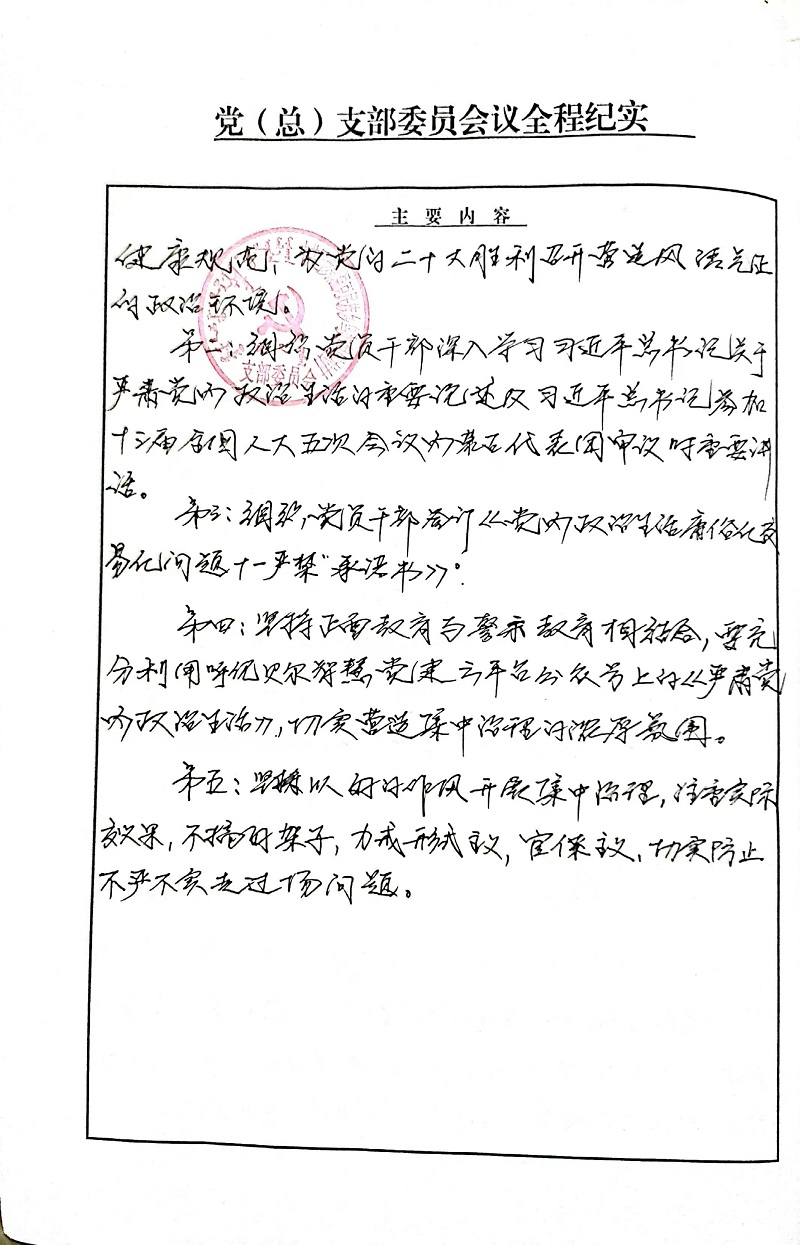 党（总）支部委员会议全程纪实
主要内容
健康规范，为党的二十大胜利召开营造风清气正
的政治环境。
第二：组织党员干部深入学习习近平总书记关于
严肃党内政治生活的重要论述及习近平总书记参加
十三届全国人大五次会议内蒙古代表团审议时重要讲
话。
第三：组织党员干部签订《党内政治生活庸俗化交
易化问题“十一严禁”承诺书》。
第四：坚持正面教育与警示教育相结合，要充
分利用呼伦贝尔智慧党建云平台公众号上的《严肃党
内政治生活》，切实营造集中治理的浓厚氛围。
第五：坚持以好的作风开展集中治理，注重实际
效果，不搞花架子，力戒形式主义，官僚主义，切实防止
不严不实走过场问题。
支部委员会